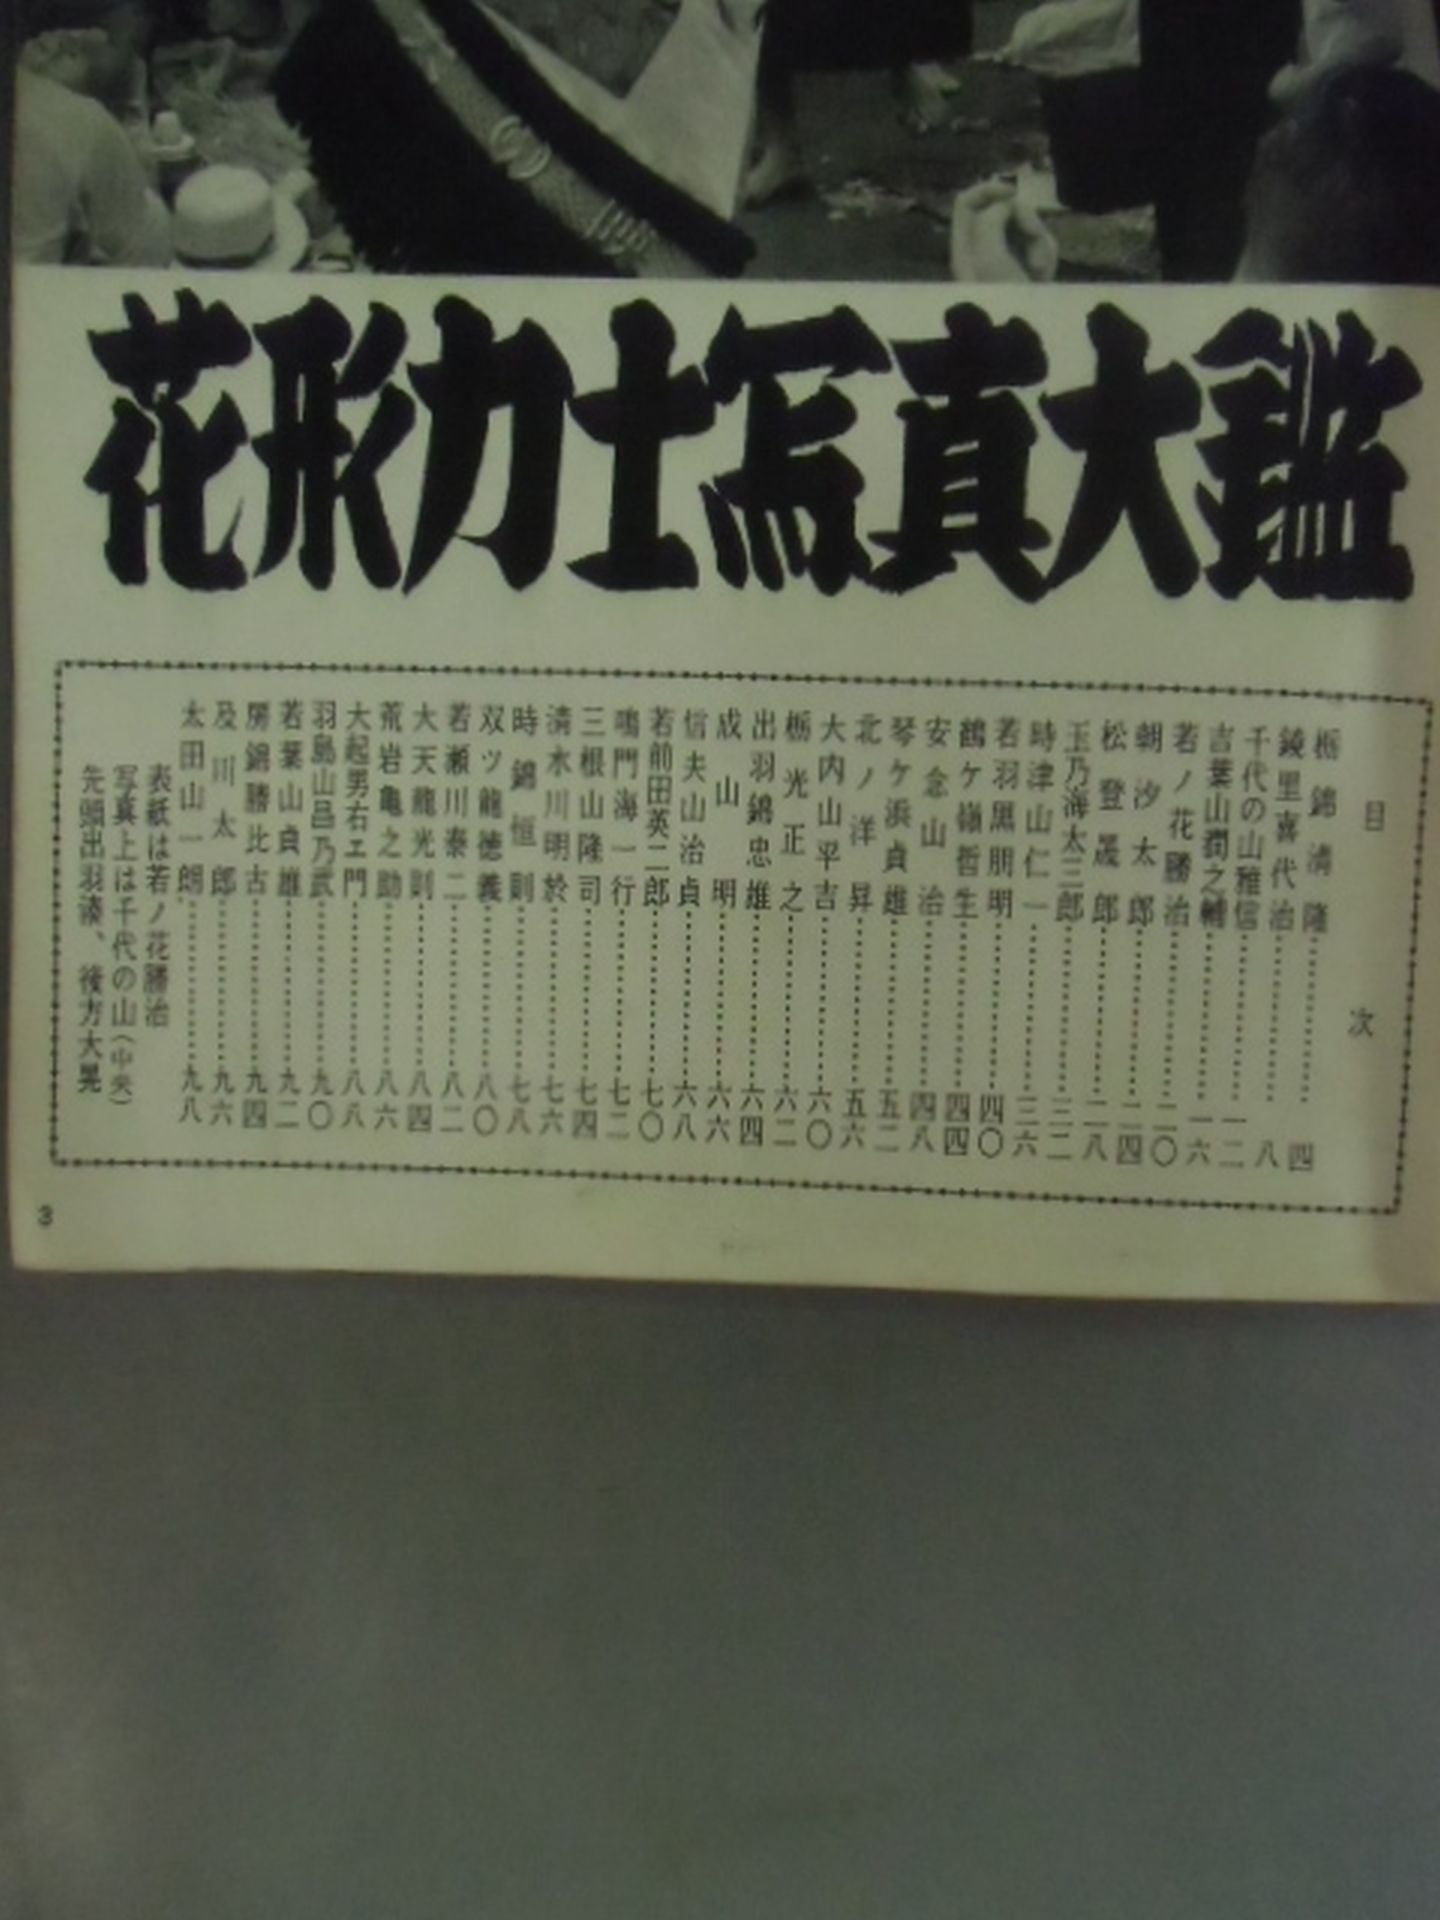 花形力士写真大鑑
目次
栃錦清隆………四
鏡里喜代治………八
千代の山雅信………一二
吉葉山潤之輔………一六
若ノ花勝治………二〇
朝汐太郎………二四
松登晟郎………二八
玉乃海太三郎………三二
時津山仁一………三六
若羽黒朋明………四〇
鶴ケ嶺哲生………四四
安念山治………四八
琴ケ浜貞雄………五二
北ノ洋昇………五六
大内山平吉………六〇
栃光正之………六二
出羽錦忠雄………六四
成山明………六六
信夫山治貞………六八
若前田英二郎………七〇
鳴門海一行………七二
三根山隆司………七四
清水川明於………七六
時錦恒則………七八
双ツ龍徳義………八〇
若瀬川泰二………八二
大天龍光則………八四
荒岩亀之助………八六
大起男右エ門………八八
羽島山昌乃武………九〇
若葉山貞雄………九二
房錦勝比古………九四
及川太郎………九六
太田山一朗………九八
表紙は若ノ花勝治
写真上は千代の山（中央）
先頭出羽湊、後方大晃
3